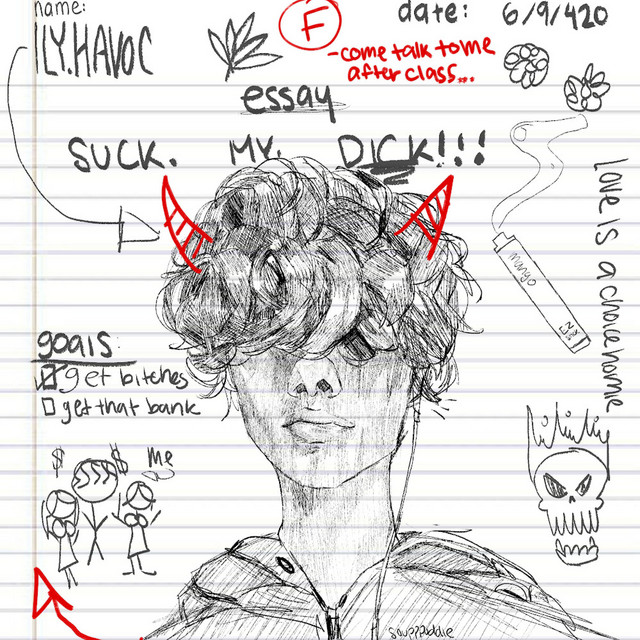 name:
ILY.HAVOC
F
-come talk to me
after class...
date: 6/9/420
essay
SUCK. MY. DICK!!!
Love is a choice homie
mango
goals:
get bitches
get that bank
$ $
me